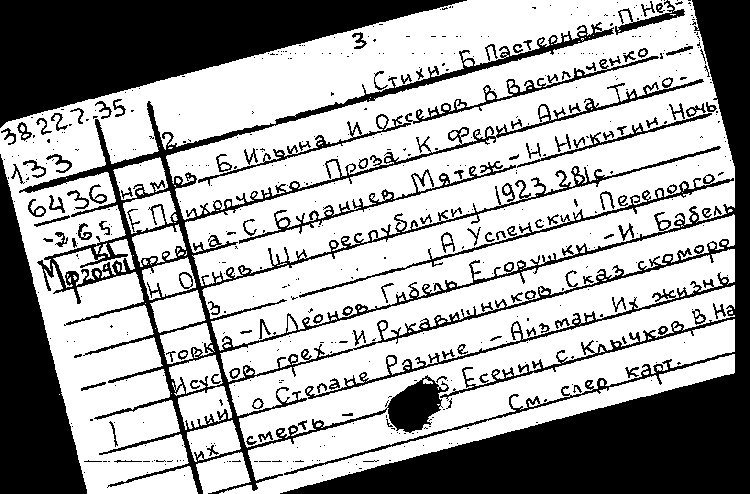 3.
38.22.7.35.
133
6436
-2,6,5
К1
Мф20401
2. [Стихи: Б. Пастернак, П. Нез-
намов, Б. Ильина, И. Оксенов, В. Васильченко,
Е. Приходченко. Проза: К. Федин. Анна Тимо-
февна. - С. Буданцев. Мятеж. - Н. Никитин. Ночь.
Н. Огнев. Щи республики]. 1923. 281с.
3. [А. Успенский. Переподго-
товка. - Л. Леонов. Гибель Егорушки. - И. Бабель
Исусов грех. - И. Рукавишников. Сказ скоморо
ший о Степане Разине. - Айзман. Их жизнь
их смерть. - С. Есенин, С. Клычков, В. На
См. след карт.